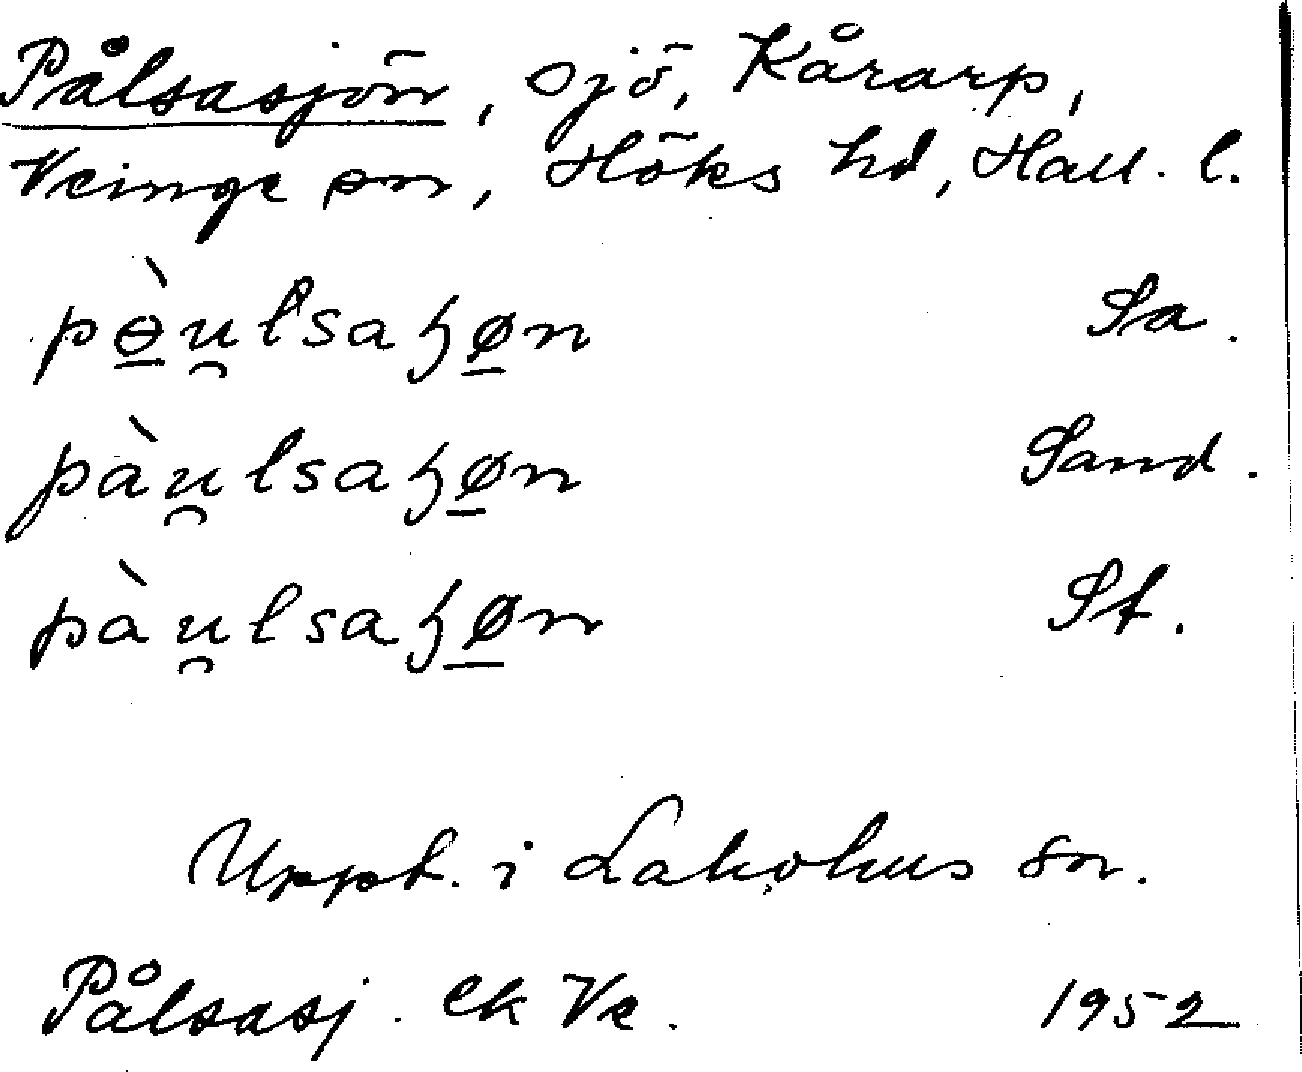 Pålsasjön, sjö, Kårarp,
Veinge sn, Höks hd, Hall. l.
pə̱̀u̯lsaɧø̱n Sa.
pàu̯lsaɧø̱n Sand.
pàu̯lsaɧø̱n St.
Uppt. i Laholms sn.
Pålsasj. ek Ve. 1952